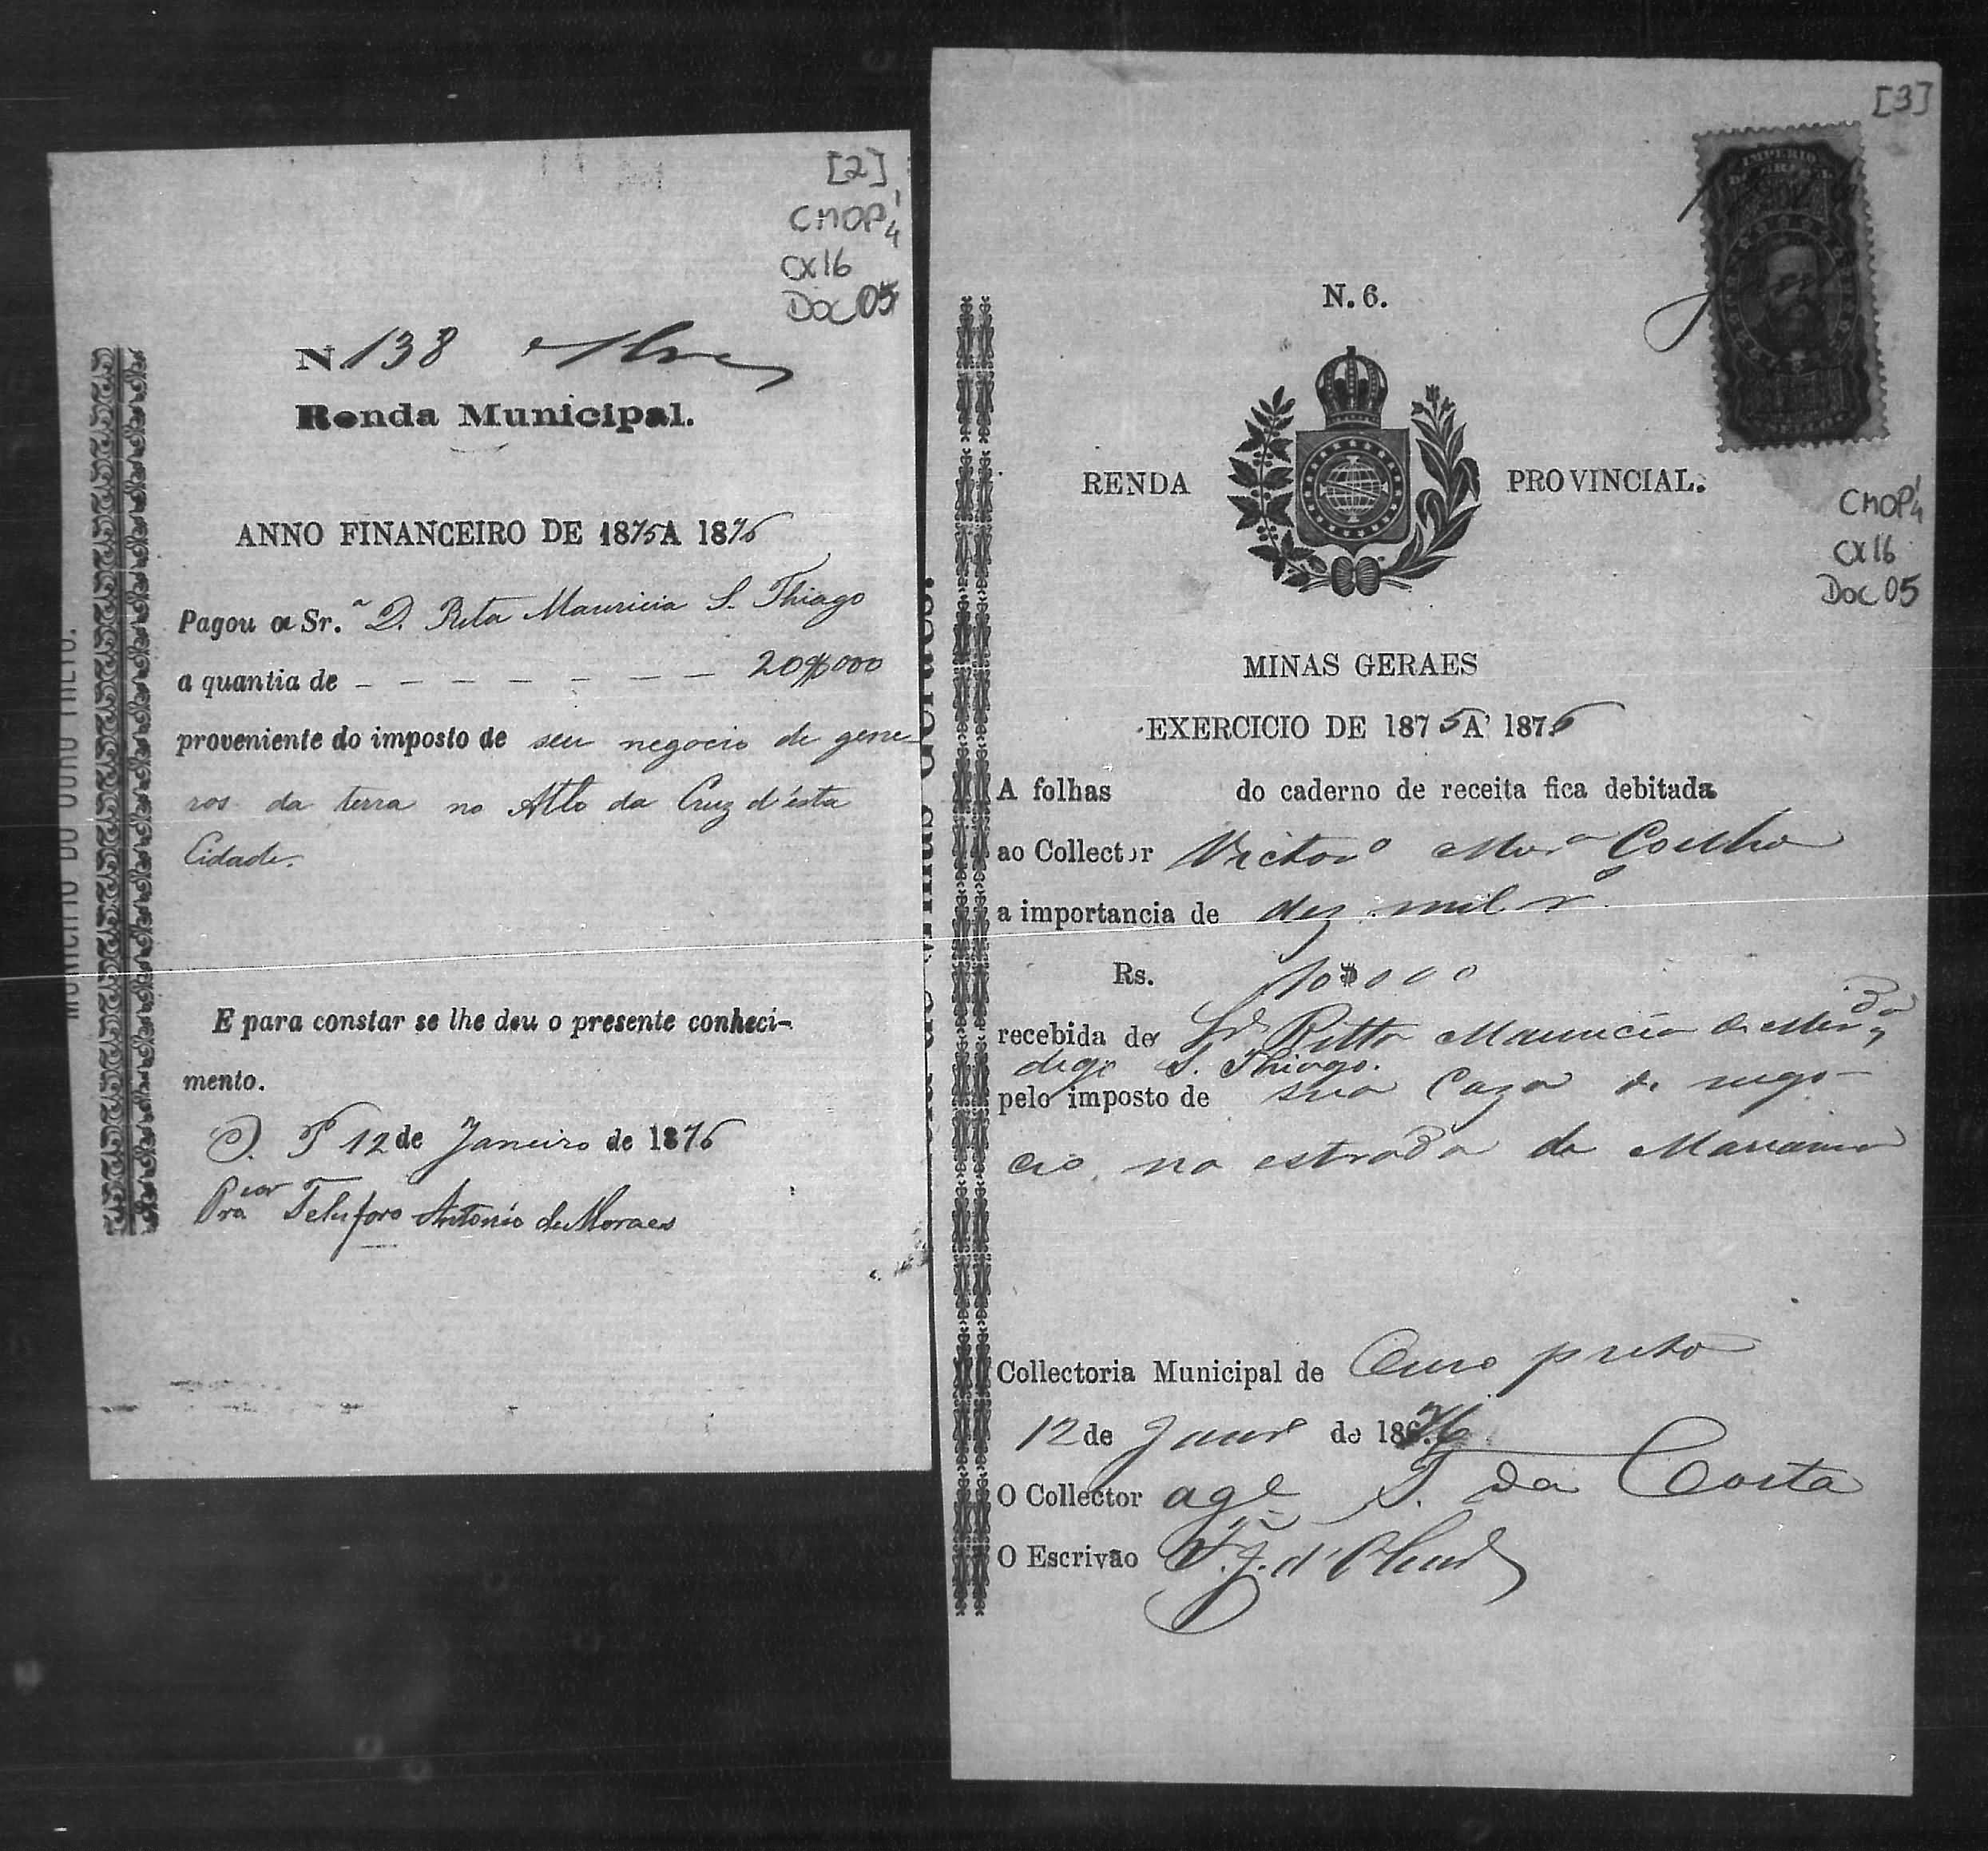 [2]
CMOP 1/4
CX16
Doc 05
N. 138
Renda Municipal.
ANNO FINANCEIRO DE 1875 A 1876
Pagou a Sr.ª D. Rita Mauricia S. Thiago
a quantia de - - - - - - - 20$000
proveniente do imposto de seu negocio de gene-
ros da terra no Alto da Cruz d'esta
Cidade.
E para constar se lhe deu o presente conheci-
mento.
O. P 12 de Janeiro de 1876
Telesforo Antonio de Moraes
MUNICIPIO DO OURO PRETO.
[3]
IMPERIO
DO BRAZIL
N. 6.
RENDA PROVINCIAL.
CMOP 1/4
CX16
Doc 05
MINAS GERAES
EXERCICIO DE 1875 A 1876
A folhas do caderno de receita fica debitada
ao Collector Victor.o Mar.a Coelho
a importancia de dez mil rs
Rs. 10$000
recebida de Ritta Mauricia de
S. Thiago.
pelo imposto de sua Caza de nego-
cio, na estrada de Marianna
Collectoria Municipal de Ouro preto
12 de Janr.o de 1876
O Collector age. da Costa
O Escrivão